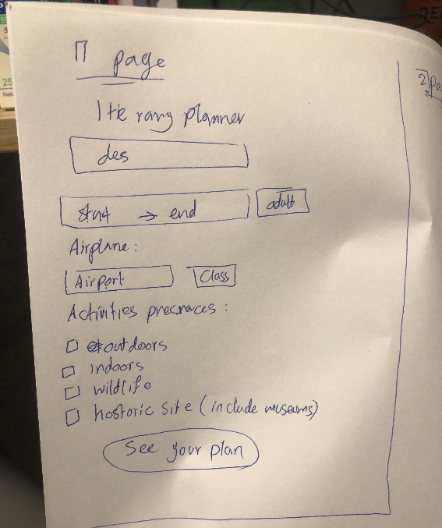 page
Iterary planner
des
start → end
adult
Airplane:
Airport
Class
Activities precnaces:
outdoors
indoors
wildlife
hostoric site (include museums)
See your plan
2 pa
25